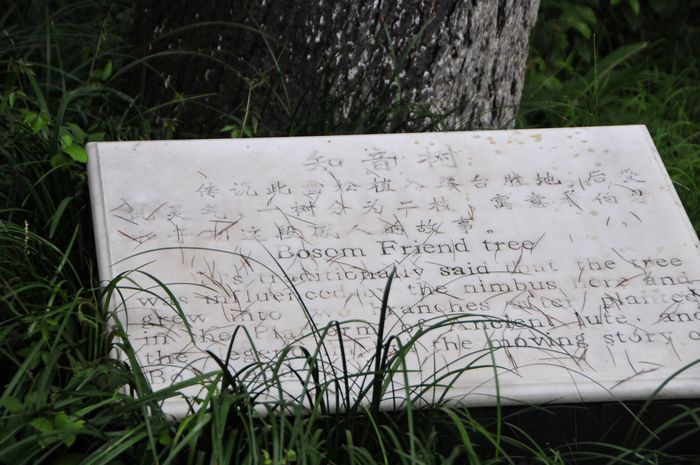 知音树
传说此雪松植入琴台胜地,后受
灵气,一树分为二枝,寓意
的故事。
Bosom Friend tree
It is traditionally said that the tree
was influenced by the nimbus here and
grew into two branches after planted
in the Platform of Ancient lute, and
the moving story